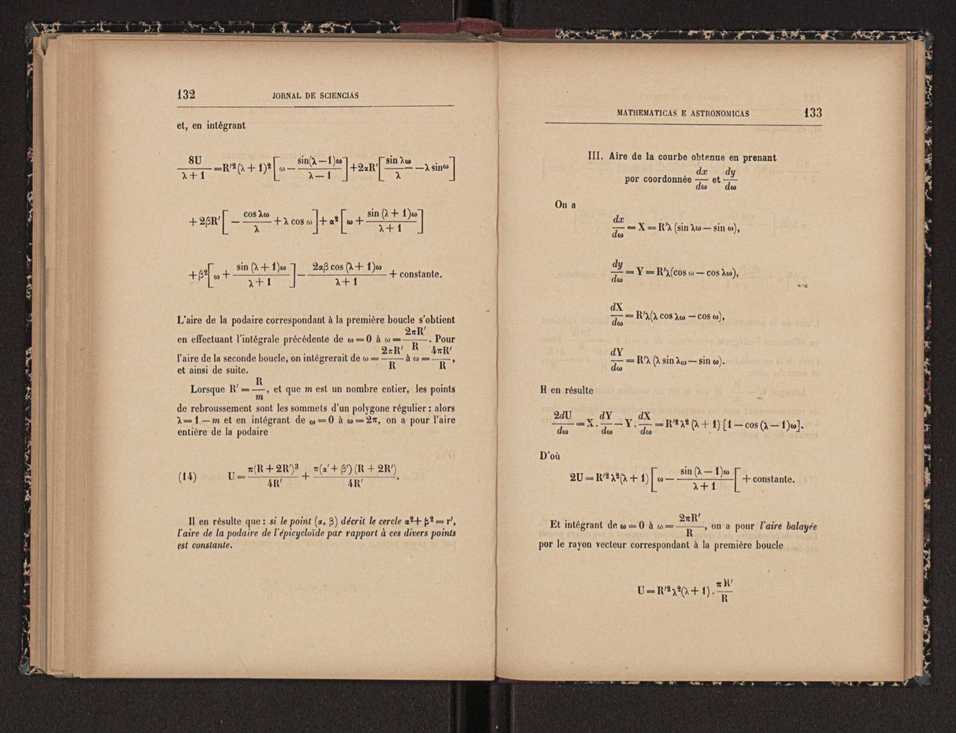 132 JORNAL DE SCIENCIAS
et, en intégrant
8U/(λ+1) = R'²(λ+1)² [ω − sin(λ−1)ω/(λ−1)] + 2αR' [sin λω/λ − λ sin ω]
+ 2βR' [− cos λω/λ + λ cos ω] + α² [ω + sin (λ+1)ω/(λ+1)]
+ β² [ω + sin (λ+1)ω/(λ+1)] − 2αβ cos (λ+1)ω/(λ+1) + constante.
L'aire de la podaire correspondant à la première boucle s'obtient
en effectuant l'intégrale précédente de ω = 0 à ω = 2πR'/R. Pour
l'aire de la seconde boucle, on intégrerait de ω = 2πR'/R à ω = 4πR'/R,
et ainsi de suite.
Lorsque R' = R/m, et que m est un nombre entier, les points
de rebroussement sont les sommets d'un polygone régulier : alors
λ = 1 − m et en intégrant de ω = 0 à ω = 2π, on a pour l'aire
entière de la podaire
(14) U = π(R + 2R')³/4R' + π(α' + β') (R + 2R')/4R'.
Il en résulte que : si le point (α, β) décrit le cercle α² + β² = r',
l'aire de la podaire de l'épicycloïde par rapport à ces divers points
est constante.
MATHEMATICAS E ASTRONOMICAS 133
III. Aire de la courbe obtenue en prenant
por coordonnée dx/dω et dy/dω
On a
dx/dω = X = R'λ (sin λω − sin ω),
dy/dω = Y = R'λ(cos ω − cos λω),
dX/dω = R'λ(λ cos λω − cos ω),
dY/dω = R'λ (λ sin λω − sin ω).
Il en résulte
2dU/dω = X . dY/dω − Y . dX/dω = R'² λ² (λ + 1) [1 − cos (λ − 1)ω].
D'où
2U = R'² λ²(λ + 1) [ω − sin (λ − 1)ω/(λ + 1) [ + constante.
Et intégrant de ω = 0 à ω = 2πR'/R, on a pour l'aire balayée
por le rayon vecteur correspondant à la première boucle
U = R'² λ²(λ + 1) . πR'/R